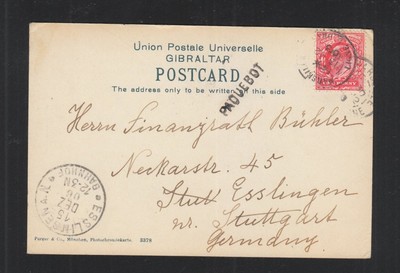 Union Postale Universelle
GIBRALTAR
POSTCARD
The address only to be written on this side
PAQUEBOT
Herrn Finanzrath Bühler
Neckarstr. 45
Stut Esslingen
nr. Stuttgart
Germany
ESSLINGEN A.N.
15
DEZ
12-5N
BAHNHOF
Purger & Co., München, Photochromiekarte. 2276